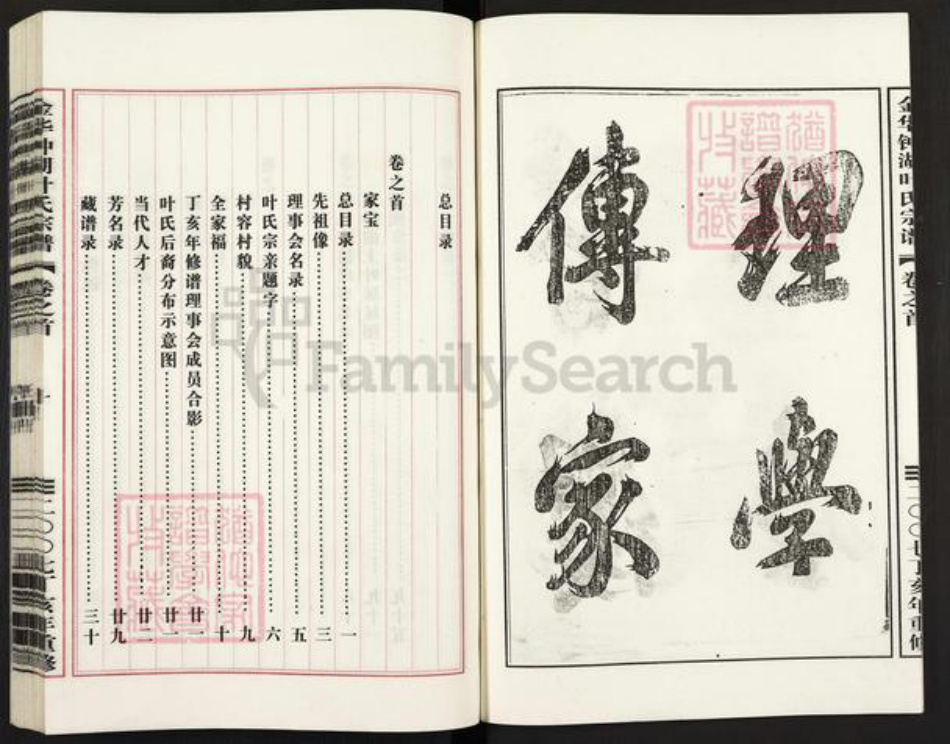 理學
傳家
金华钟湖叶氏宗谱
卷之首
二〇〇七丁亥年重修
总目录
卷之首
家宝
总目录……一
先祖像……三
理事会名录……五
叶氏宗亲题字……六
村容村貌……九
全家福……十
丁亥年修谱理事会成员合影……廿一
叶氏后裔分布示意图……廿一
当代人才……廿二
芳名录……廿九
藏谱录……三十
金华钟湖叶氏宗谱
卷之首
二〇〇七丁亥年重修
FamilySearch